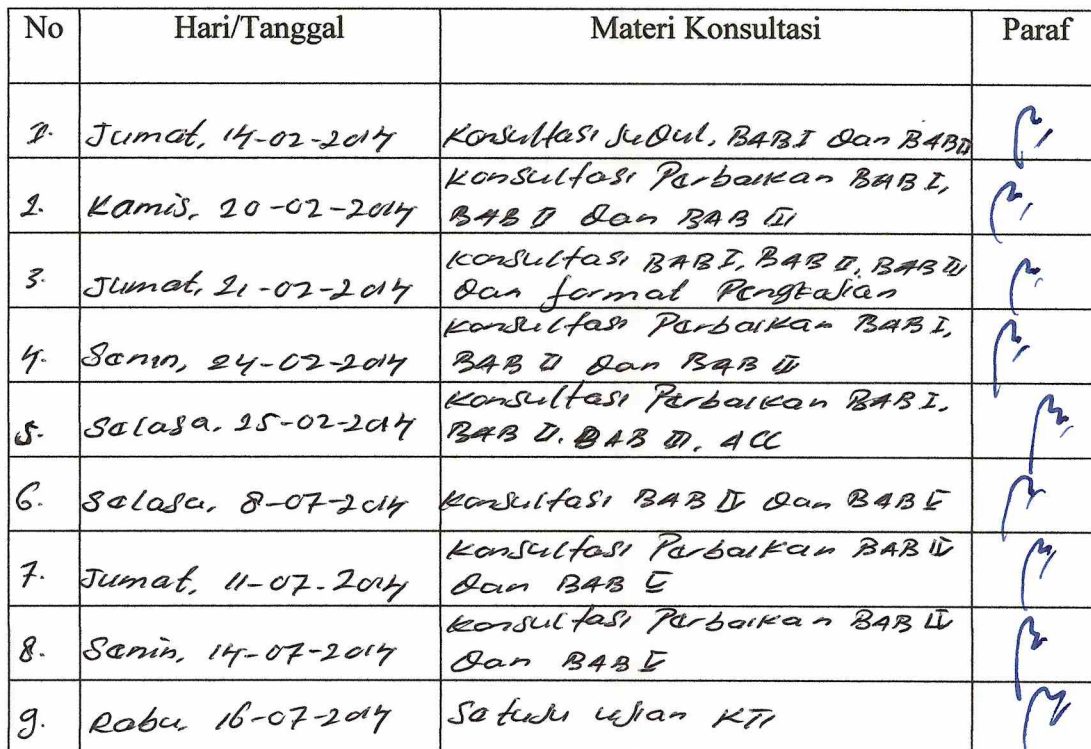 No Hari/Tanggal Materi Konsultasi Paraf
1. Jumat, 14-02-2014 Konsultasi Judul, BAB I dan BAB II
2. Kamis, 20-02-2014 Konsultasi Perbaikan BAB I,
BAB II dan BAB III
3. Jumat, 21-02-2014 Konsultasi BAB I, BAB II, BAB III
dan format Pengkajian
4. Senin, 24-02-2014 Konsultasi Perbaikan BAB I,
BAB II dan BAB III
5. Selasa, 25-02-2014 Konsultasi Perbaikan BAB I,
BAB II, BAB III, ACC
6. Selasa, 8-07-2014 Konsultasi BAB IV dan BAB V
7. Jumat, 11-07-2014 Konsultasi Perbaikan BAB IV
dan BAB V
8. Senin, 14-07-2014 Konsultasi Perbaikan BAB IV
dan BAB V
9. Rabu, 16-07-2014 Setuju ujian KTI